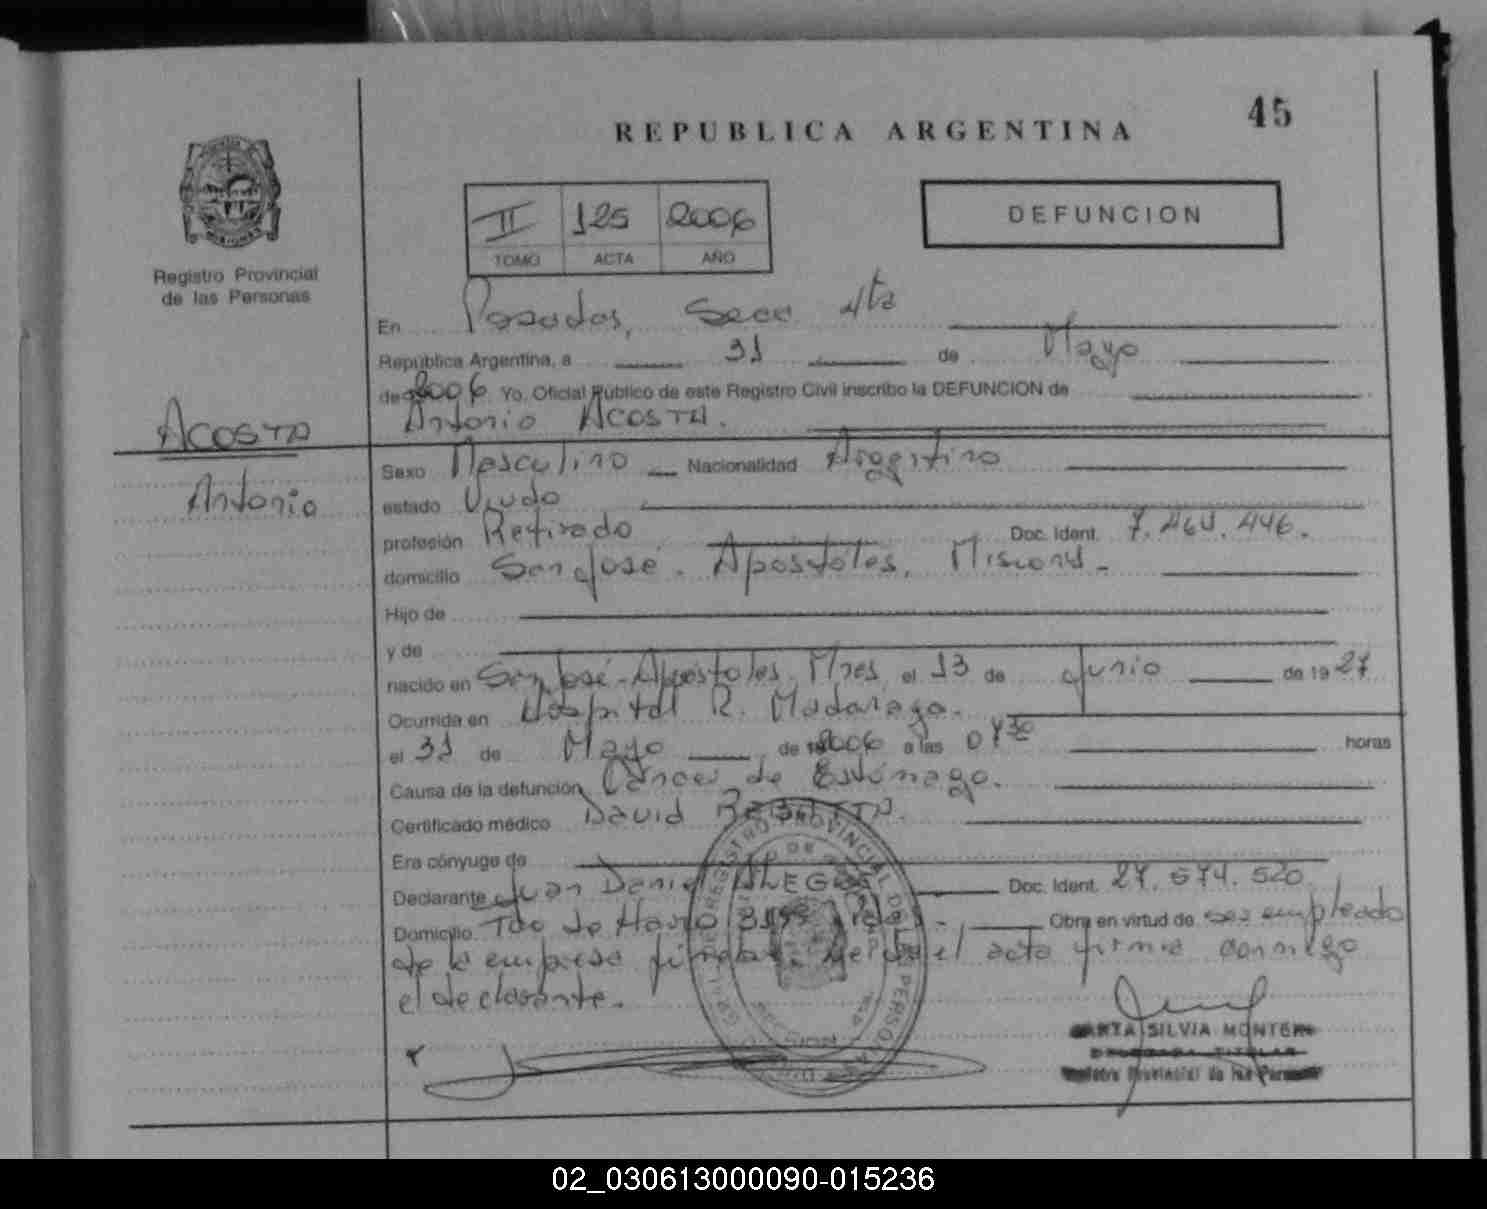 45
REPUBLICA ARGENTINA
II 125 2006
TOMO ACTA AÑO
DEFUNCION
MISIONES
Registro Provincial
de las Personas
En Posadas, Secc 4ta
República Argentina, a 31 de Mayo
de 2006 Yo, Oficial Público de este Registro Civil inscribo la DEFUNCION de
Antonio ACOSTA.
ACOSTA
Antonio
Sexo Masculino Nacionalidad Argentino
estado Viudo
profesión Retirado Doc. Ident. 7.464.446.
domicilio San José. Apóstoles, Misiones.
Hijo de
y de
nacido en San José - Apóstoles, Mnes el 13 de Junio de 19 27
Ocurrida en Hospital R. Madariaga.
el 31 de Mayo de 2006 a las 04 30 horas
Causa de la defunción Cáncer de Estómago.
Certificado médico David
Era cónyuge de
Declarante Juan Daniel Doc. Ident. 27.574.520
Domicilio Tdo de Haro Obra en virtud de ser empleado
de la empresa el acta firma conmigo
el declarante.
REGISTRO PROVINCIAL DE LAS PERSONAS
MARTA SILVIA MONTERO
DELEGADA TITULAR
Registro Provincial de las Personas
02_030613000090-015236